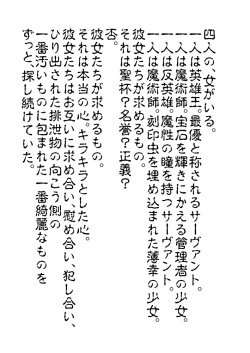 四人の、女がいる。
一人は英雄王。最優と称されるサーヴァント。
一人は魔術師。宝石を輝きにかえる管理者の少女。
一人は反英雄。魔性の瞳を持つサーヴァント。
一人は魔術師。刻印虫を埋め込まれた薄幸の少女。
彼女たちが求めるもの。
それは聖杯？名誉？正義？
否。
彼女たちが求めるもの。
それは本当の心。キラキラとした心。
彼女たちはお互いに求め合い、慰め合い、犯し合い、
ひり出された排泄物の向こう側の
一番汚いものに包まれた一番綺麗なものを
ずっと、探し続けていた。